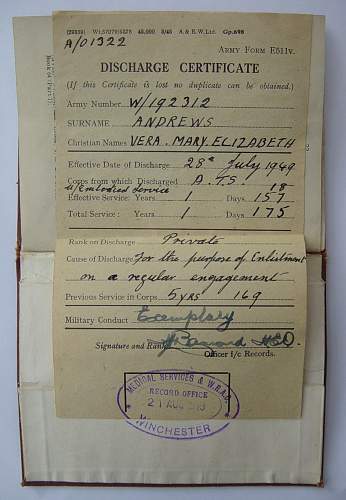 (29039) Wt.57079/5378 45,000 3/45 A. & E.W.Ltd. Gp.698
A/01322
ARMY FORM E511v.
DISCHARGE CERTIFICATE
(If this Certificate is lost no duplicate can be obtained.)
Army Number W/192312
SURNAME ANDREWS
Christian Names VERA. MARY. ELIZABETH
Effective Date of Discharge 28th July 1949
Corps from which Discharged A.T.S.
Embodied Service 18
Effective Service: Years 1 Days 157
Total Service: Years 1 Days 175
Rank on Discharge Private
Cause of Discharge For the purpose of Enlistment
on a regular engagement
Previous Service in Corps 5 yrs 169
Military Conduct Exemplary
Signature and Rank
Officer i/c Records.
MEDICAL SERVICES & W.R.A.C.
RECORD OFFICE
21 AUG
WINCHESTER